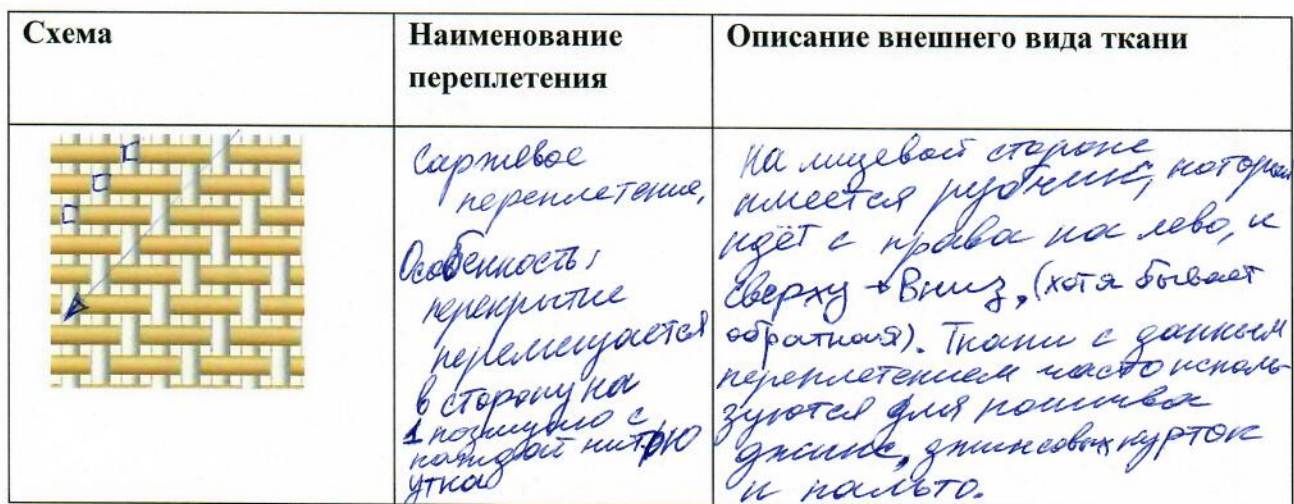 Схема
Наименование
переплетения
Описание внешнего вида ткани
Саржевое
переплетение,
Особенность:
перекрытие
перемещается
в сторону на
1 позицию с
каждой нитью
утка
На лицевой стороне
имеется рубчик, который
идёт с права на лево, и
сверху → вниз, (хотя бывает
обратная). Ткани с данным
переплетением часто исполь-
зуются для пошива
джинс, джинсовых курток
и пальто.